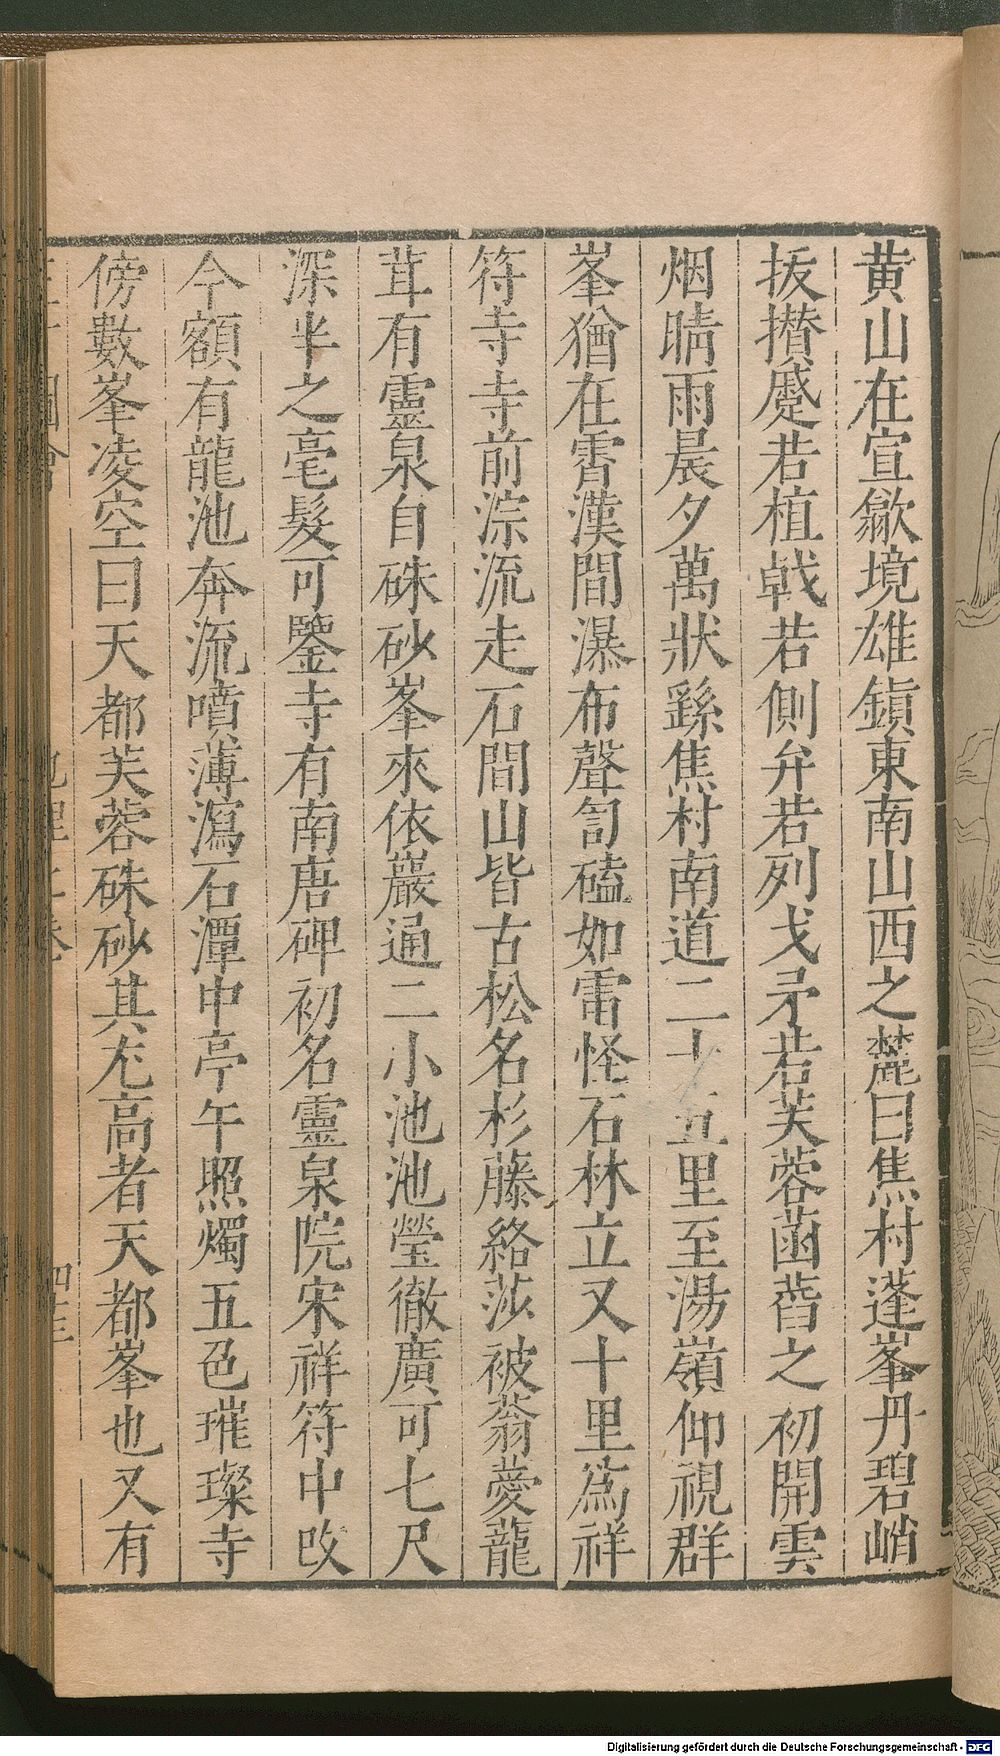 黄山在宣歙境雄鎮東南山西之麓曰焦村蓬峯丹碧峭
拔攅蹙若植戟若側弁若列戈矛若芙蓉菡萏之初開雲
烟晴雨晨夕萬狀繇焦村南道二十五里至湯嶺仰視群
峯猶在霄漢間瀑布聲訇磕如雷怪石林立又十里爲祥
符寺寺前淙流走石間山皆古松名杉藤絡莎被蓊薆蘢
茸有靈泉自硃砂峯來依巖通二小池池瑩徹廣可七尺
深半之毫髮可鑒寺有南唐碑初名靈泉院宋祥符中改
今額有龍池奔流噴薄瀉石潭中亭午照燭五色璀璨寺
傍數峯凌空曰天都芙蓉硃砂其尤高者天都峯也又有
地理 卷 四三
Digitalisierung gefördert durch die Deutsche Forschungsgemeinschaft - DFG